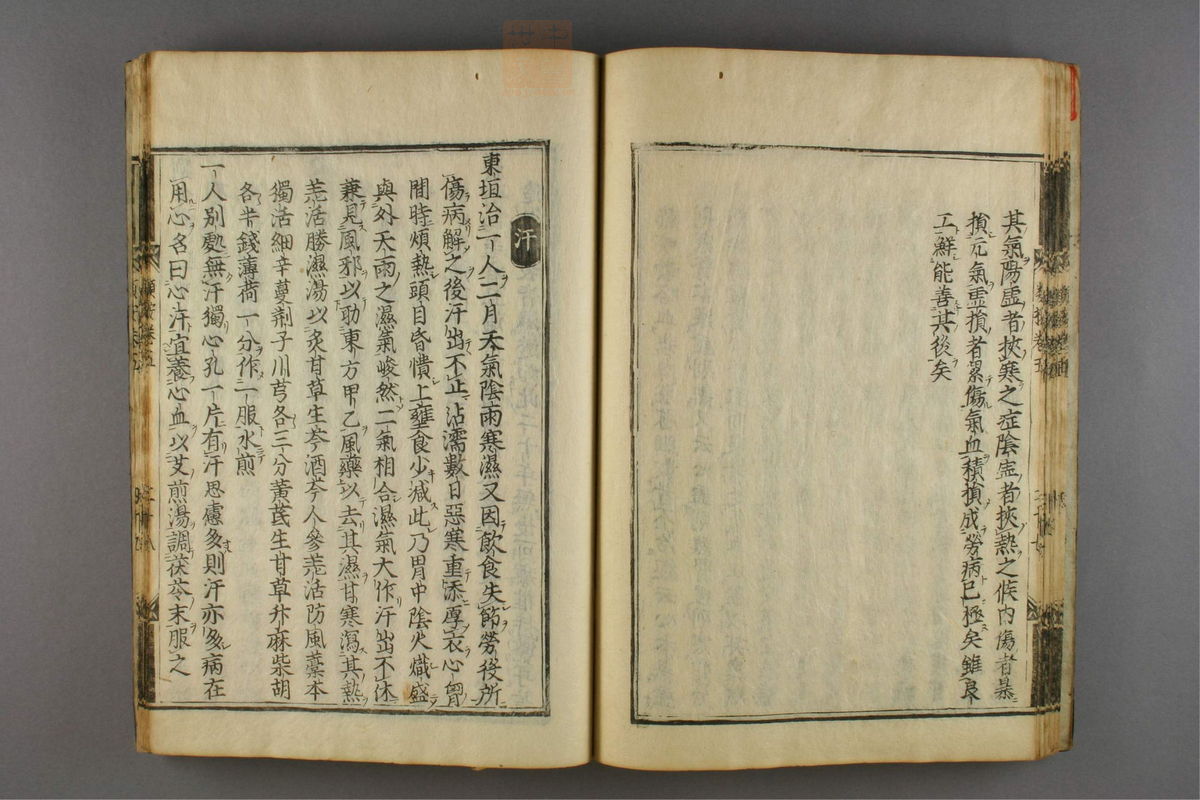 其氣陽虛者挾寒之症陰虛者挾熱之候内傷者暴
損元氣虛損者累傷氣血積損成勞病已極矣雖良
工鮮能善其後矣
汗
東垣治一人二月天氣陰雨寒濕又因飲食失節勞役所
傷病解之後汗出不止沾濡數日惡寒重添厚衣心胷
間時煩熱頭目昏憒上壅食少減此乃胃中陰火熾盛
與外天雨之濕氣峻然二氣相合濕氣大作汗出不休
兼見風邪以助東方甲乙風藥以去其濕甘寒瀉其熱
羌活勝濕湯以炙甘草生芩酒芩人參羌活防風藁本
獨活細辛蔓荊子川芎各三分黃芪生甘草升麻柴胡
各半錢薄荷一分作一服水煎
一人別處無汗獨心孔一片有汗思慮多則汗亦多病在
用心名曰心汗宜養心血以艾煎湯調茯苓末服之